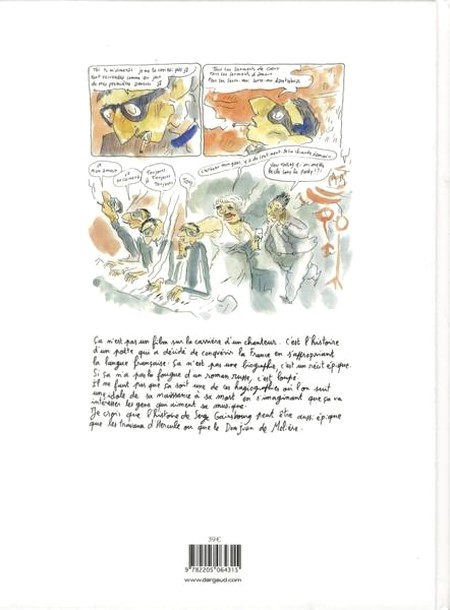 Tous les serments de cœur
Tous les serments d'amour
à mon amour
Toujours
Toujours
Toujours
Ça n'est pas un film sur la carrière d'un chanteur. C'est l'histoire
d'un poète qui a décidé de conquérir la France en s'appropriant
la langue française. Ça n'est pas une biographie, c'est un récit épique.
Si ça n'a pas la fougue d'un roman russe, c'est loupé.
Il ne faut pas que ça soit une de ces hagiographies où l'on suit
une idole de sa naissance à sa mort en s'imaginant que ça va
intéresser les gens qui aiment sa musique.
Je crois que l'histoire de Serge Gainsbourg peut être aussi épique
que les travaux d'Hercule ou que le Don Juan de Molière.
39€
9 782205 064315
www.dargaud.com